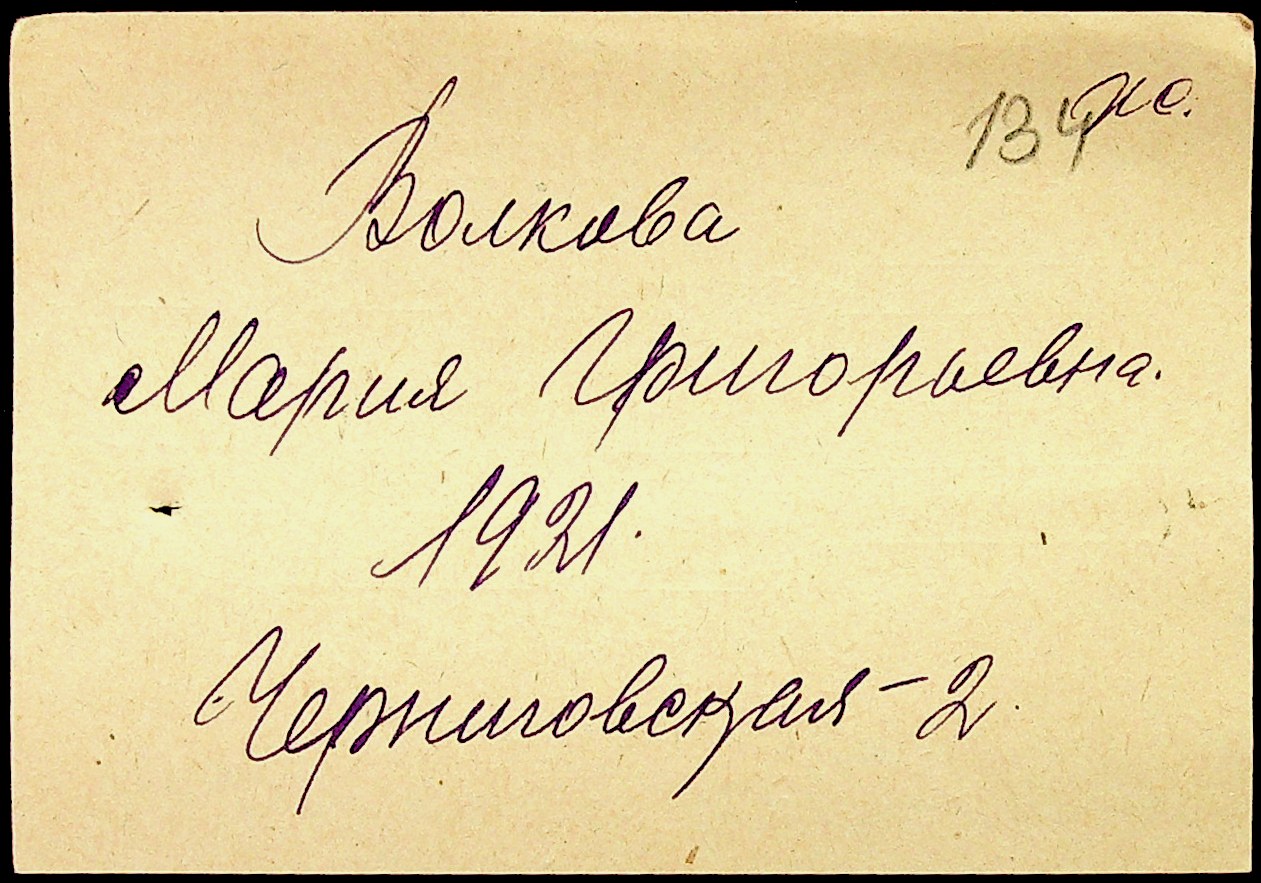 134
Волкова
Мария Григорьевна.
1921.
Черниговская - 2.